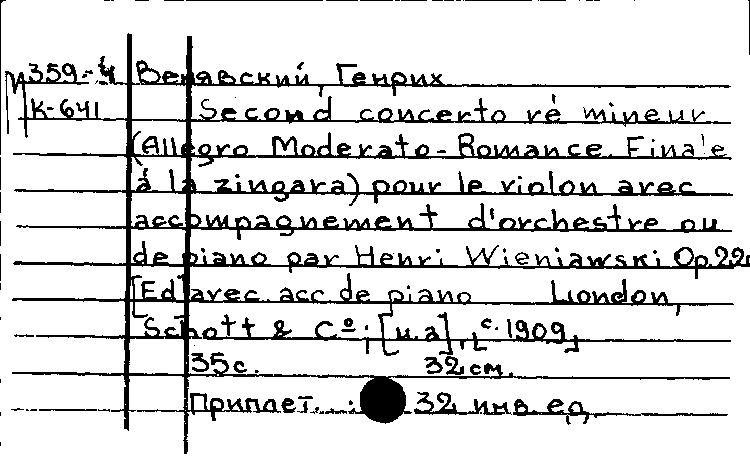 И359-4 Венявский, Генрих
К-641 Second concerto ré mineur
(Allegro Moderato-Romance. Finale
à la zingara) pour le violon avec
accompagnement d'orchestre ou
de piano par Henri Wieniawski Op.22.
[Ed] avec. acc de piano London,
Schott & Cº; [u.a], [c. 1909]
35с. 32 см.
Приплет..: 32 инв. ед.